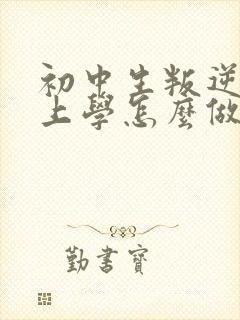 初中生叛逆
上學怎麼做
勤書寶